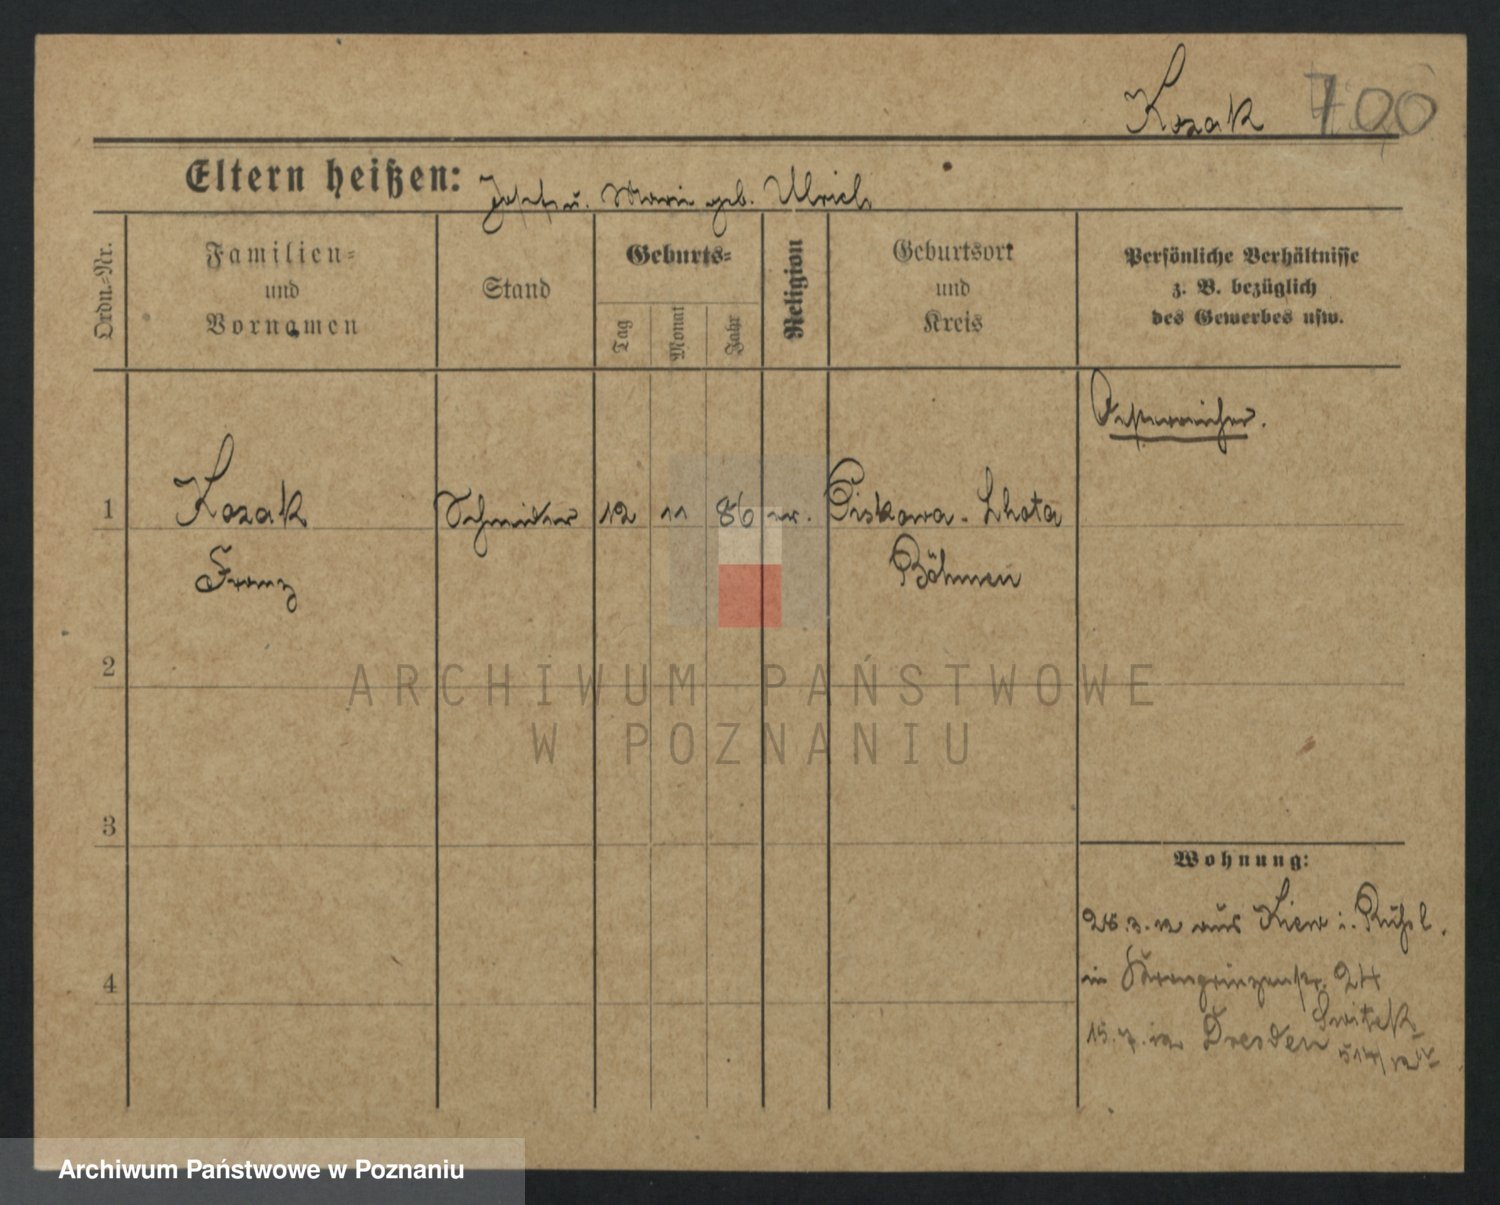 Kozak 700
Eltern heißen: Joseph u. Marie geb. Ulrich
Ordn.-Nr.
Familien-
und
Vornamen
Stand
Geburts-
Tag
Monat
Jahr
Religion
Geburtsort
und
Kreis
Persönliche Verhältnisse
z. B. bezüglich
des Gewerbes usw.
Oesterreicher.
1 Kozak Schneider 12 11 86 Piskowa-Lhota
Franz Böhmen
2
3
4
Wohnung:
28.3.12 aus Kiew i. Rußl.
in Kronprinzenstr. 24
Switek
15.7.12 Dresden
514/12
ARCHIWUM PAŃSTWOWE
W POZNANIU
Archiwum Państwowe w Poznaniu